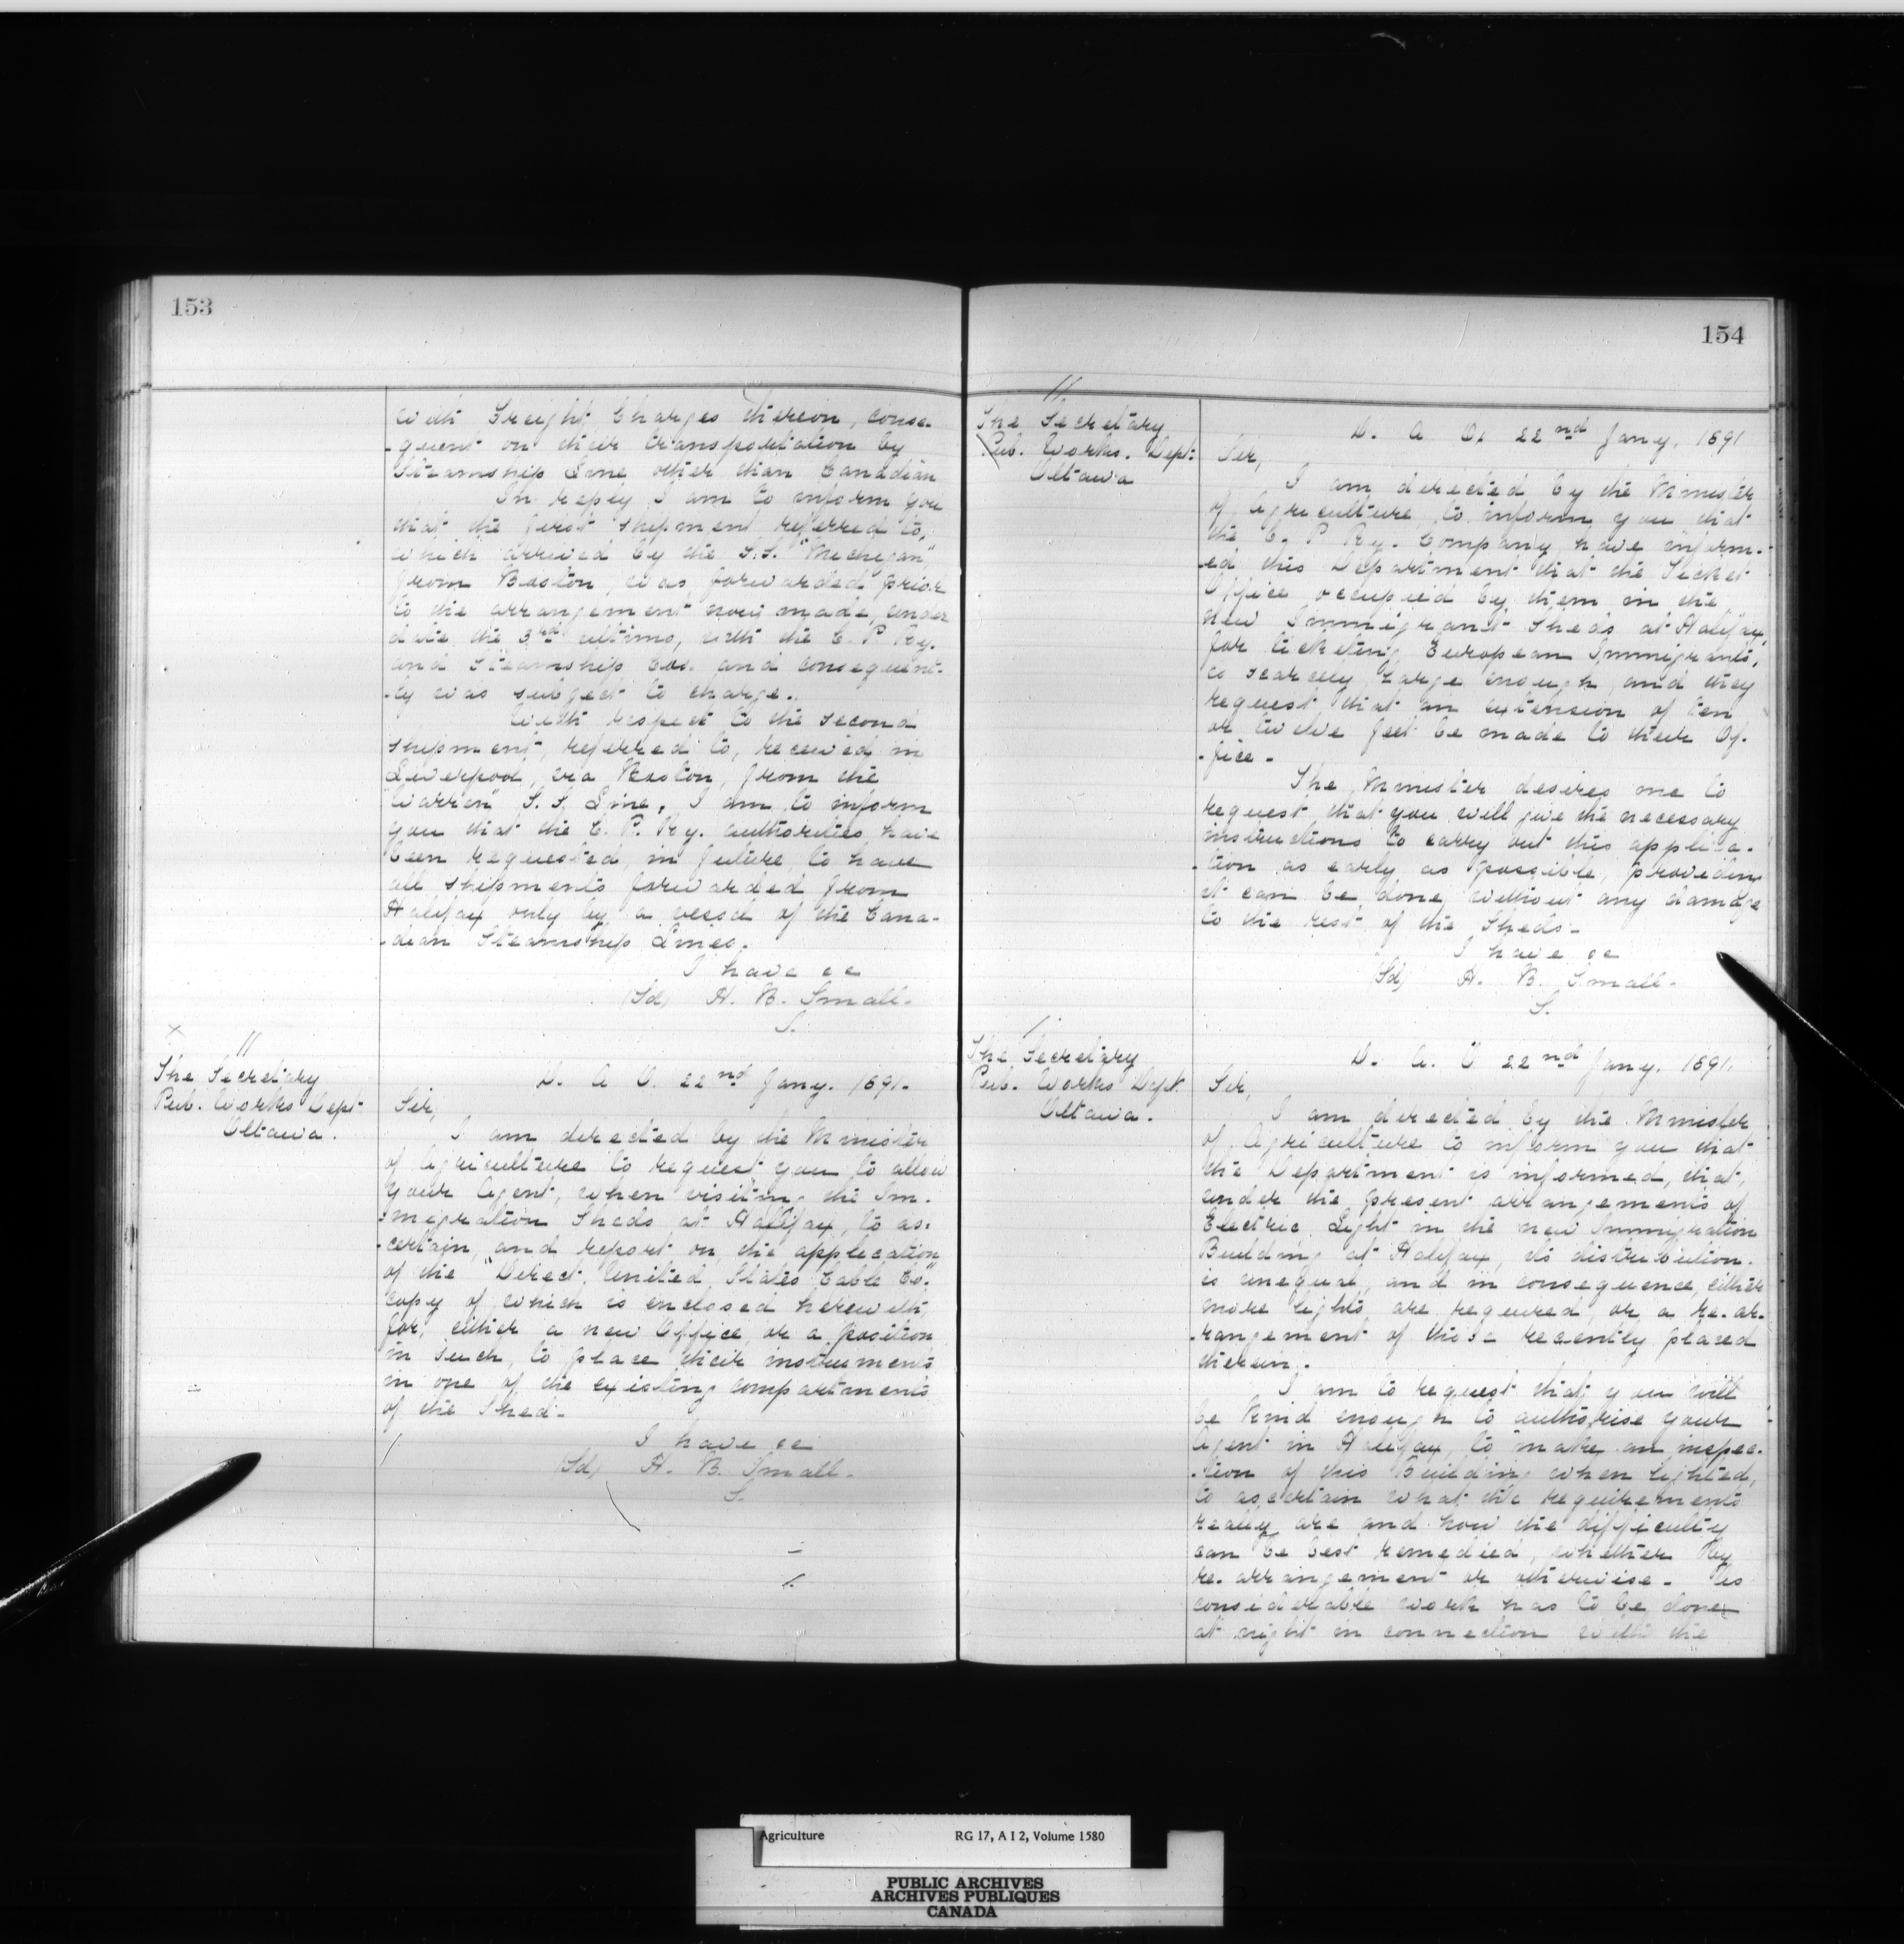 153
with Freight Charges thereon, conse-
-quent on their transportation by
Steamship Line other than Canadian
In reply I am to inform you
that the first shipment referred to,
which arrived by the S.S. "Michigan",
from Boston, was forwarded prior
to the arrangement now made, under
date the 3rd ultimo, with the C. P. Ry.
and Steamship Cos. and consequent-
-ly was subject to charge.
With respect to the second
shipment, referred to, received in
Liverpool, via Boston, from the
"Warren" S. S. Line, I am to inform
you that the C. P. Ry. authorities have
been requested, in future, to have
all shipments forwarded from
Halifax only by a vessel of the Cana-
-dian Steamship Lines.
I have &c
(Sd) H. B. Small.
S.
The Secretary
Pub. Works Dept.
Ottawa.
D. A. O. 22nd Jany. 1891.
Sir,
I am directed by the Minister
of Agriculture to request you to allow
your Agent, when visiting the Im-
-migration Sheds at Halifax, to as-
-certain, and report on, the application
of the "Direct United States Cable Co."
copy of which is enclosed herewith,
for, either a new Office, or a position
in such, to place their instruments
in one of the existing compartments
of the Shed.
I have &c
(Sd) H. B. Small.
S.
154
The Secretary
Pub. Works. Dept.
Ottawa
D. A. O. 22nd Jany, 1891
Sir,
I am directed by the Minister
of Agriculture, to inform you that
the C. P. Ry. Company, have inform-
-ed this Department that the Ticket
Office occupied by them in the
new Immigrant Sheds at Halifax,
for ticketing European Immigrants,
is scarcely large enough, and they
request that an extension of ten
or twelve feet be made to their Of-
-fice.
The Minister desires me to
request that you will give the necessary
instructions to carry out this applica-
-tion as early as possible, providing
it can be done, without any damage
to the rest of the Sheds.
I have &c
(Sd) H. B. Small.
S.
The Secretary
Pub. Works Dept.
Ottawa.
D. A. O 22nd Jany. 1891.
Sir,
I am directed by the Minister
of Agriculture to inform you that
the Department is informed, that,
under the present arrangements of
Electric Light in the new Immigration
Building at Halifax, its distribution
is unequal, and in consequence, either
more lights are required, or a re-ar-
-rangement of those recently placed
therein.
I am to request that you will
be kind enough to authorise your
Agent in Halifax, to make an inspec-
-tion of this Building when lighted,
to ascertain what the requirements
really are and how the difficulty
can be best remedied, whether by
re-arrangement or otherwise. As
considerable work has to be done
at night in connection with the
Agriculture RG 17, A I 2, Volume 1580
PUBLIC ARCHIVES
ARCHIVES PUBLIQUES
CANADA